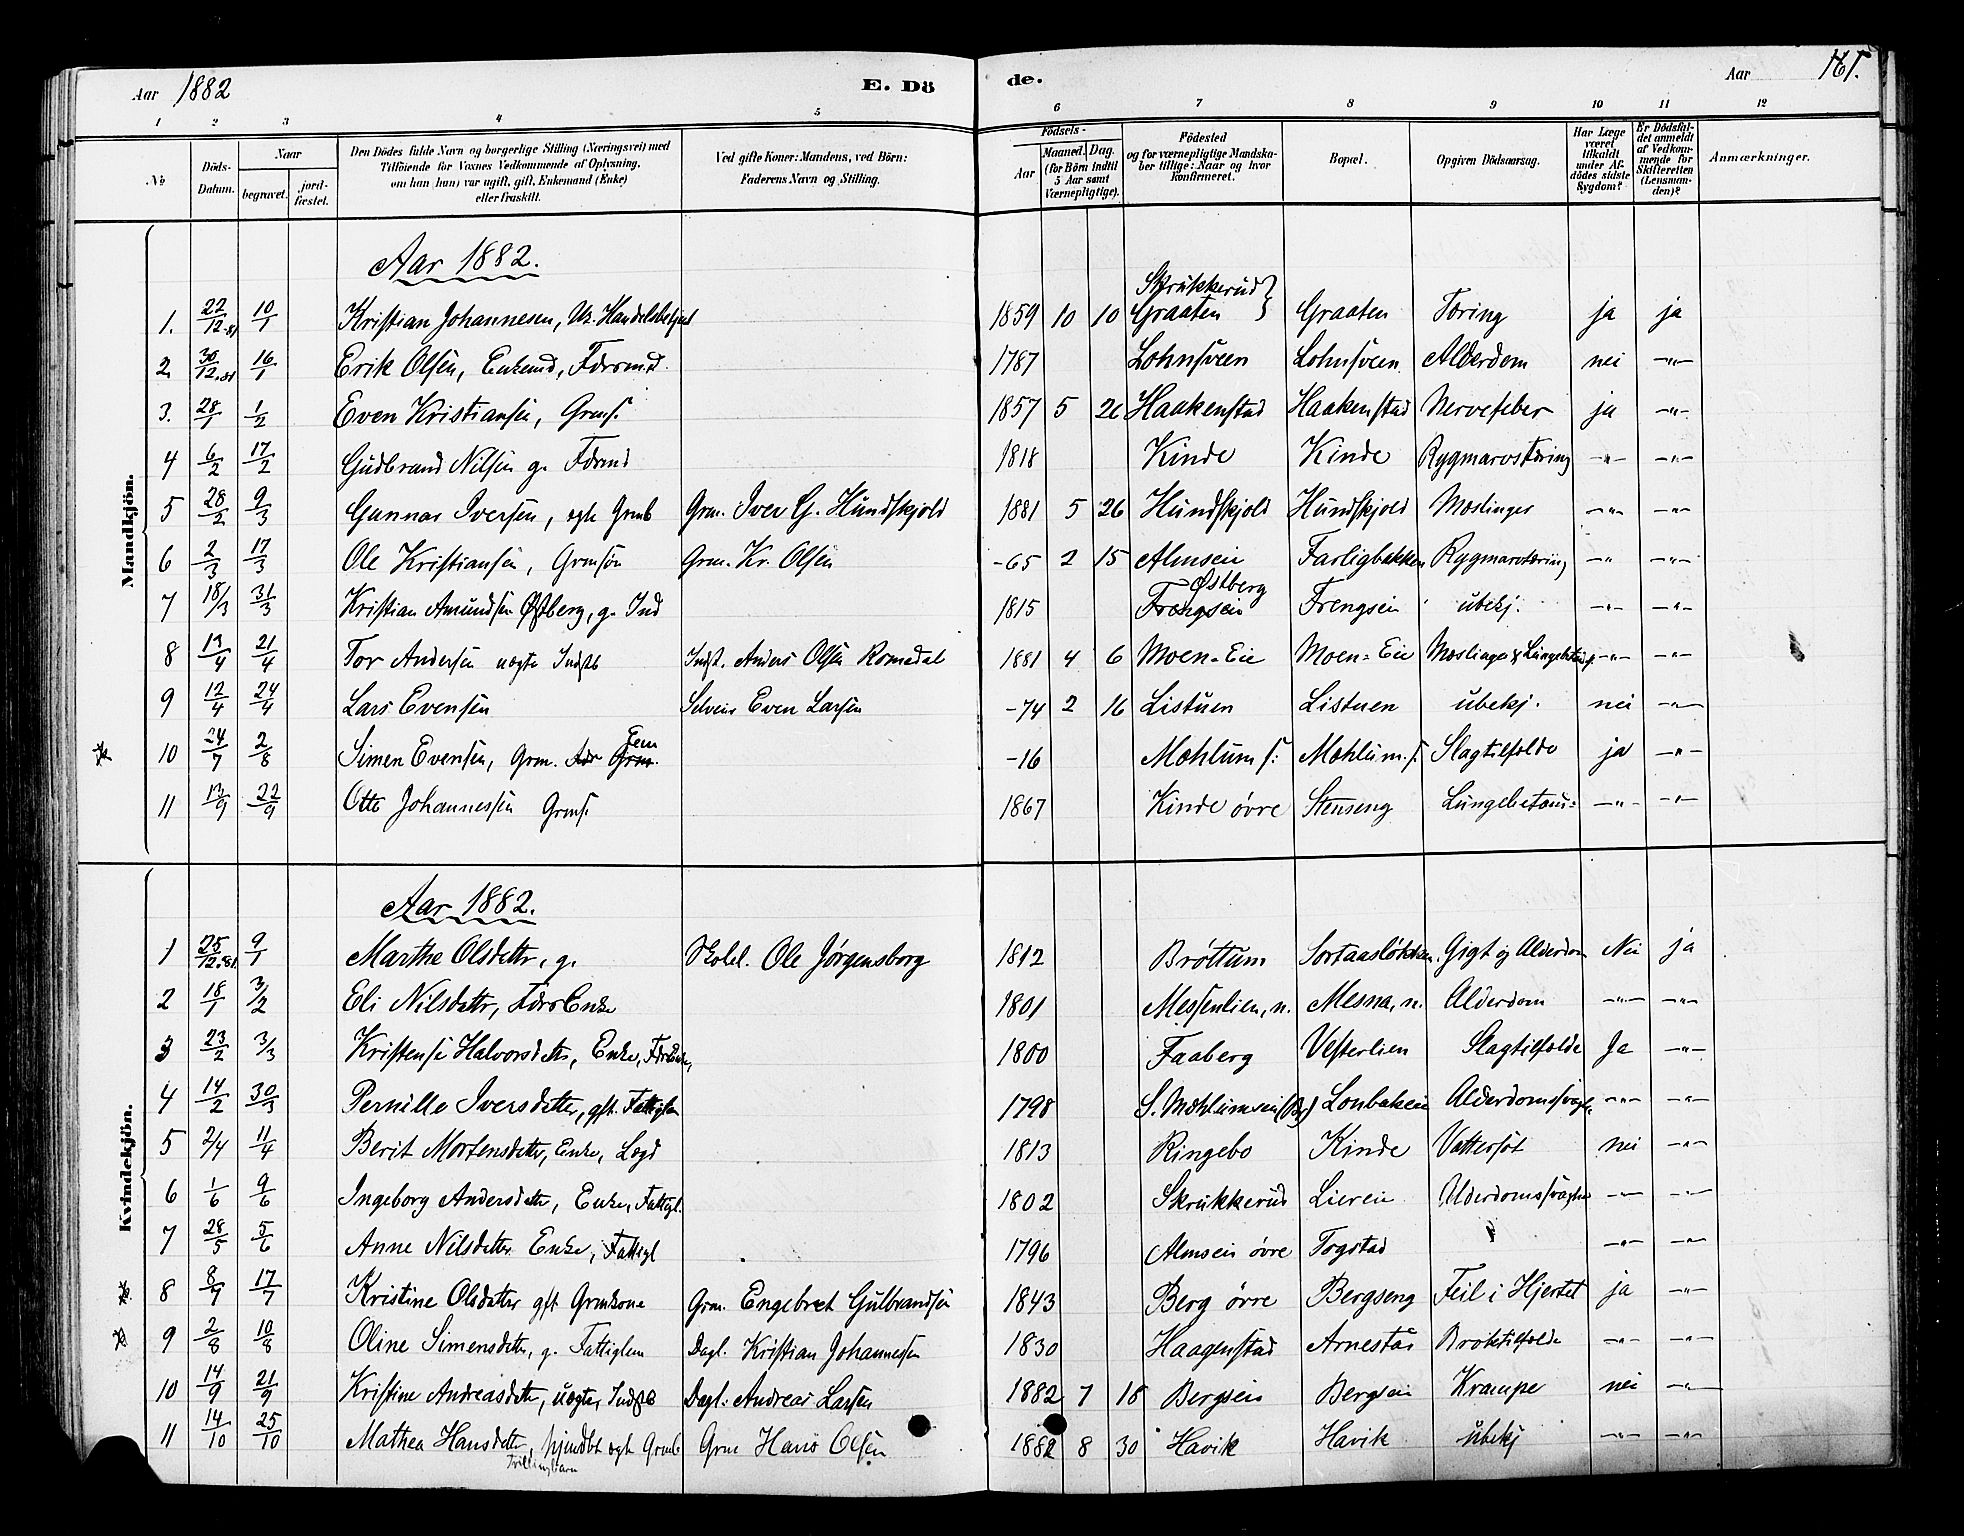 Aar 1882
E. Dö
de.
Aar
161.
1 2 3 4 5 6 7 8 9 10 11 12
No
Döds-Datum.
Naar
begravet.
jord-fæstet.
Den Dödes fulde Navn og borgerlige Stilling (Næringsvei) med
Tilföiende for Voxnes Vedkommende af Oplysning,
om han (hun) var ugift, gift, Enkemand (Enke)
eller fraskilt.
Ved gifte Koner: Mandens, ved Börn:
Faderens Navn og Stilling.
Födsels-
Aar
Maaned. Dag.
(for Börn indtil
5 Aar samt
Værnepligtige).
Födested
og for værnepligtige Mandska-
ber tillige: Naar og hvor
konfirmeret.
Bopæl.
Opgiven Dödsaarsag.
Har Læge
været
tilkaldt
under Af-
dödes sidste
Sygdom?
Er Dödsfal-
det anmeldt
af Vedkom-
mende for
Skifteretten
(Lensman-
den)?
Anmærkninger.
Mandkjön.
Aar 1882.
1. 22/12.81 10/1 Kristian Johannesen, 1859 10 10 Skrukkerud Graaten } Graaten Tæring ja ja
2 30/12.81 16/1 Erik Olsen, Enkemd, Fdrsmd. 1787 Lohnsveen Lohnsveen Alderdom nei -"-
3. 28/1 1/2 Even Kristiansen, Grms. 1857 5 26 Haakenstad Haakenstad Nervefeber ja -"-
4 6/2 17/2 Gudbrand Nilsen g. Fdrmd 1818 Kinde Kinde Rygmarvstæring -"- -"-
5 28/2 9/3 Gunnar Iversen, ægte Grmb Grm. Iver G. Hundskjold 1881 5 26 Hundskjold Hundskjold Mæslinger -"- -"-
6 2/3 17/3 Ole Kristiansen, Grmsøn Grm. Kr. Olsen -65 2 15 Almseie Farligbakken Rygmarvtæring -"- -"-
7 18/3 31/3 Kristian Amundsen Østberg, g. Ind 1815 Østberg Frengseie Frengseie ubekj. -"- -"-
8 13/4 21/4 Tor Andersen uægte Indstb Indst. Anders Olsen Romedal 1881 4 6 Moen-Eie Moen-Eie Mæslinger & -"- -"-
9 12/4 24/4 Lars Evensen Selveier Even Larsen -74 2 16 Listuen Listuen ubekj. nei -"-
10 24/7 2/8 Simen Evensen, Grm. -16 Mæhlum s. Mæhlum s. Slagtilfælde ja -"-
11 13/9 22/9 Otto Johannessen Grms. 1867 Kinde øvre Stenseng Lungebetæn= -"- -"-
Kvindekjön.
Aar 1882.
1 25/12.81 9/1 Marthe Olsdatter, g. Skolel. Ole Jørgensborg 1812 Brøttum Sortaasløkken Gigt og Alderdom Nei ja
2 18/1 3/2 Eli Nilsdatter, FdrsEnke 1801 Messenlien, n. Mesna, n. Alderdom -"- -"-
3 23/2 3/3 Kristense Halvorsdatter, Enke, FdrEnke, 1800 Faaberg Vesterlien Slagtilfælde Ja -"-
4 14/2 30/3 Pernille Iversdatter, gft. Fattiglem 1798 S. Mæhlumseie Lonbakken Alderdomssvagh. -"- -"-
5 2/4 11/4 Berit Mortensdatter, Enke, Lægd 1813 Ringebo Kinde Vattersot nei -"-
6 1/6 9/6 Ingeborg Andersdatter, Enke, Fattigl. 1802 Skrukkerud Liereie Alderdomssvaghed -"- -"-
7 28/5 5/6 Anne Nilsdatter Enke, Fattigl 1796 Almseie øvre Togstad -"- -"-
8 8/7 17/7 Kristine Olsdatter gft Grmkone Grm. Engebret Gulbrandsen 1843 Berg øvre Bergseng Feil i Hjertet ja -"-
9 2/8 10/8 Oline Simensdatter, g. Fattiglem Dagl. Kristian Johannessen 1830 Haagenstad Arnestad Broktilfælde -"- -"-
10 14/9 21/9 Kristine Andreasdatter, uægte Indstb Dagl. Andreas Larsen 1882 7 18 Bergseie Bergseie Krampe nei -"-
11 14/10 25/10 Mathea Hansdatter, hjemdbt ægte Grmb Grm Hans Olsen 1882 8 30 Havik Havik ubekj -"- -"-
Tvillingbarn